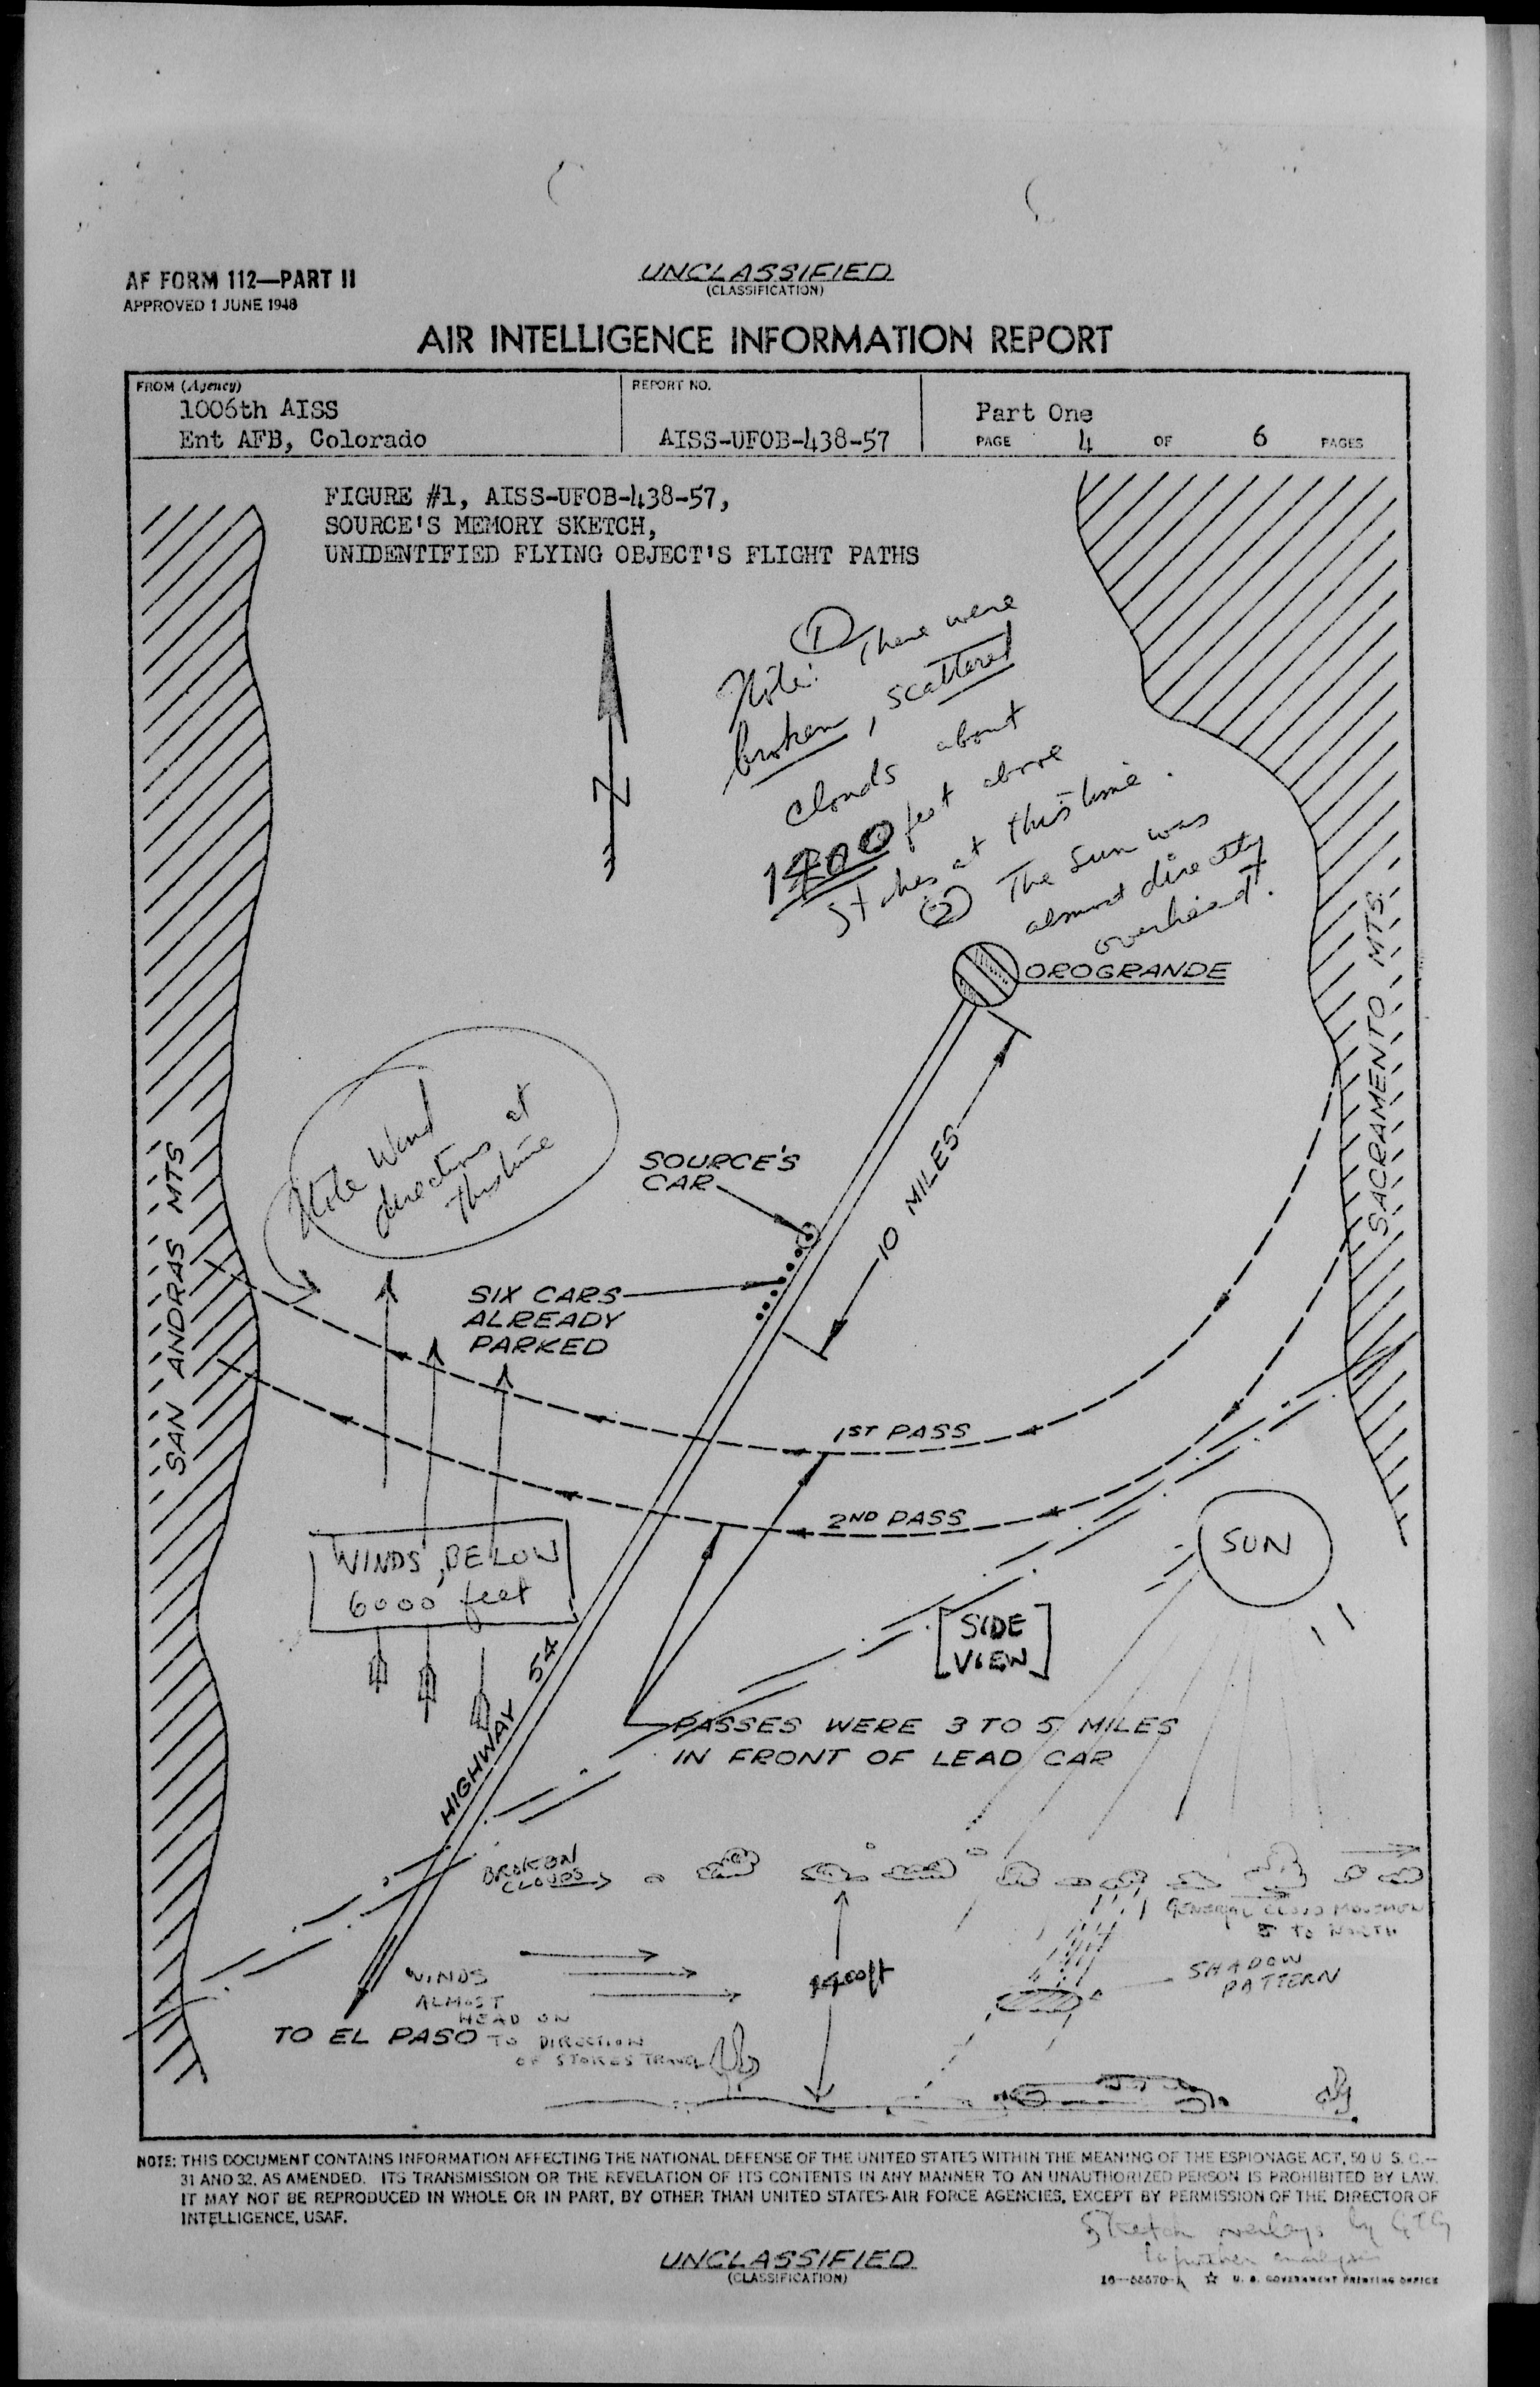 AF FORM 112—PART II
APPROVED 1 JUNE 1948
UNCLASSIFIED
(CLASSIFICATION)
AIR INTELLIGENCE INFORMATION REPORT
FROM (Agency)
1006th AISS
Ent AFB, Colorado
REPORT NO.
AISS-UFOB-438-57
Part One
PAGE 4 OF 6 PAGES
FIGURE #1, AISS-UFOB-438-57,
SOURCE'S MEMORY SKETCH,
UNIDENTIFIED FLYING OBJECT'S FLIGHT PATHS
N
①
Note: There were
broken, scattered
clouds about
feet above
Stokes at this time.
② The Sun was
almost directly
overhead.
OROGRANDE
SACRAMENTO MTS.
SAN ANDRAS MTS
Note Wind
directions at
this time
SOURCE'S
CAR
10 MILES
SIX CARS
ALREADY
PARKED
1ST PASS
2ND PASS
WINDS, BELOW
6000 feet
SUN
[SIDE
VIEW]
HIGHWAY 54
PASSES WERE 3 TO 5 MILES
IN FRONT OF LEAD CAR
BROKEN
CLOUDS
GENERAL CLOUD MOVEMENT
S TO NORTH
SHADOW
PATTERN
WINDS
ALMOST
HEAD ON
TO DIRECTION
OF STOKES TRAVEL
1400ft
TO EL PASO
NOTE: THIS DOCUMENT CONTAINS INFORMATION AFFECTING THE NATIONAL DEFENSE OF THE UNITED STATES WITHIN THE MEANING OF THE ESPIONAGE ACT, 50 U. S. C.—
31 AND 32, AS AMENDED. ITS TRANSMISSION OR THE REVELATION OF ITS CONTENTS IN ANY MANNER TO AN UNAUTHORIZED PERSON IS PROHIBITED BY LAW.
IT MAY NOT BE REPRODUCED IN WHOLE OR IN PART, BY OTHER THAN UNITED STATES AIR FORCE AGENCIES, EXCEPT BY PERMISSION OF THE DIRECTOR OF
INTELLIGENCE, USAF.
Sketch overlays by
further analysis
UNCLASSIFIED
(CLASSIFICATION)
☆ U. S. GOVERNMENT PRINTING OFFICE